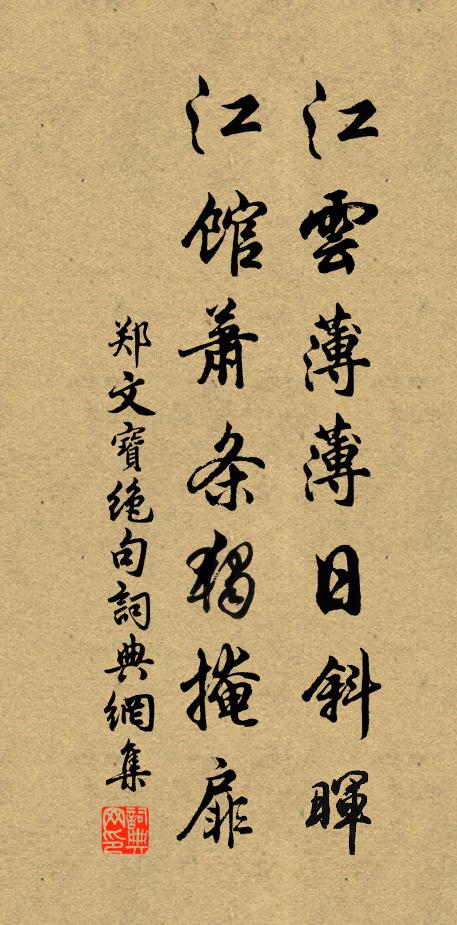 江雲薄薄日斜暉
江館蕭条獨掩扉
郑文寶绝句詞典網集
詞典网印